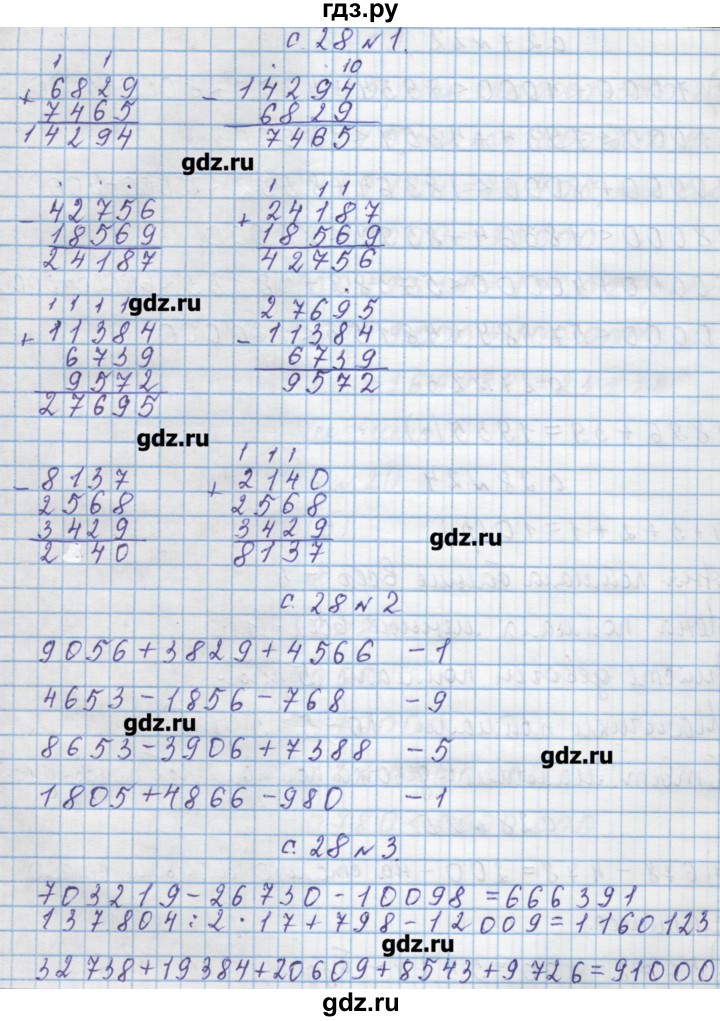 гдз.ру
с. 28 № 1.
1 1
+ 6829
7465
14294
10
- 14294
6829
7465
gdz.ru
- 42756
18569
24187
1 1 1
+ 24187
18569
42756
gdz.ru
1 1 1 1
+ 11384
6739
9572
27695
27695
- 11384
6739
9572
gdz.ru
- 8137
2568
3429
2 40
1 1 1
+ 2140
2568
3429
8137
gdz.ru
с. 28 № 2
9056+3829+4566 - 1
4653-1856-768 - 9
gdz.ru
8653-3906+7388 - 5
gdz.ru
1805+4866-980 - 1
с. 28 № 3.
703219-26730-10098=666391
137804:2·17+798-12009=1160123
gdz.ru
32738+19384+20609+8543+9726=91000
gdz.ru